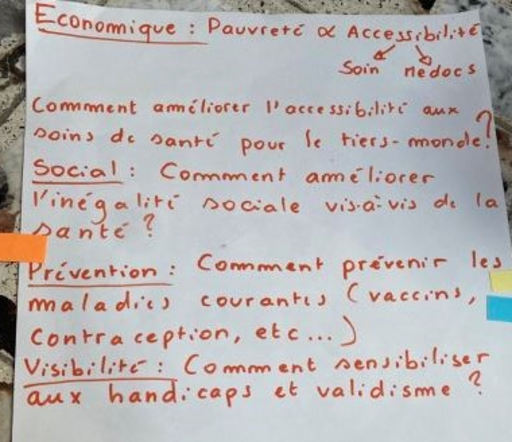 Economique : Pauvreté ∝ Accessibilité
Soin medocs
Comment améliorer l'accessibilité aux
soins de santé pour le tiers-monde ?
Social : Comment améliorer
l'inégalité sociale vis-à-vis de la
santé ?
Prévention : Comment prévenir les
maladies courantes (vaccins,
contraception, etc...)
Visibilité : Comment sensibiliser
aux handicaps et validisme ?